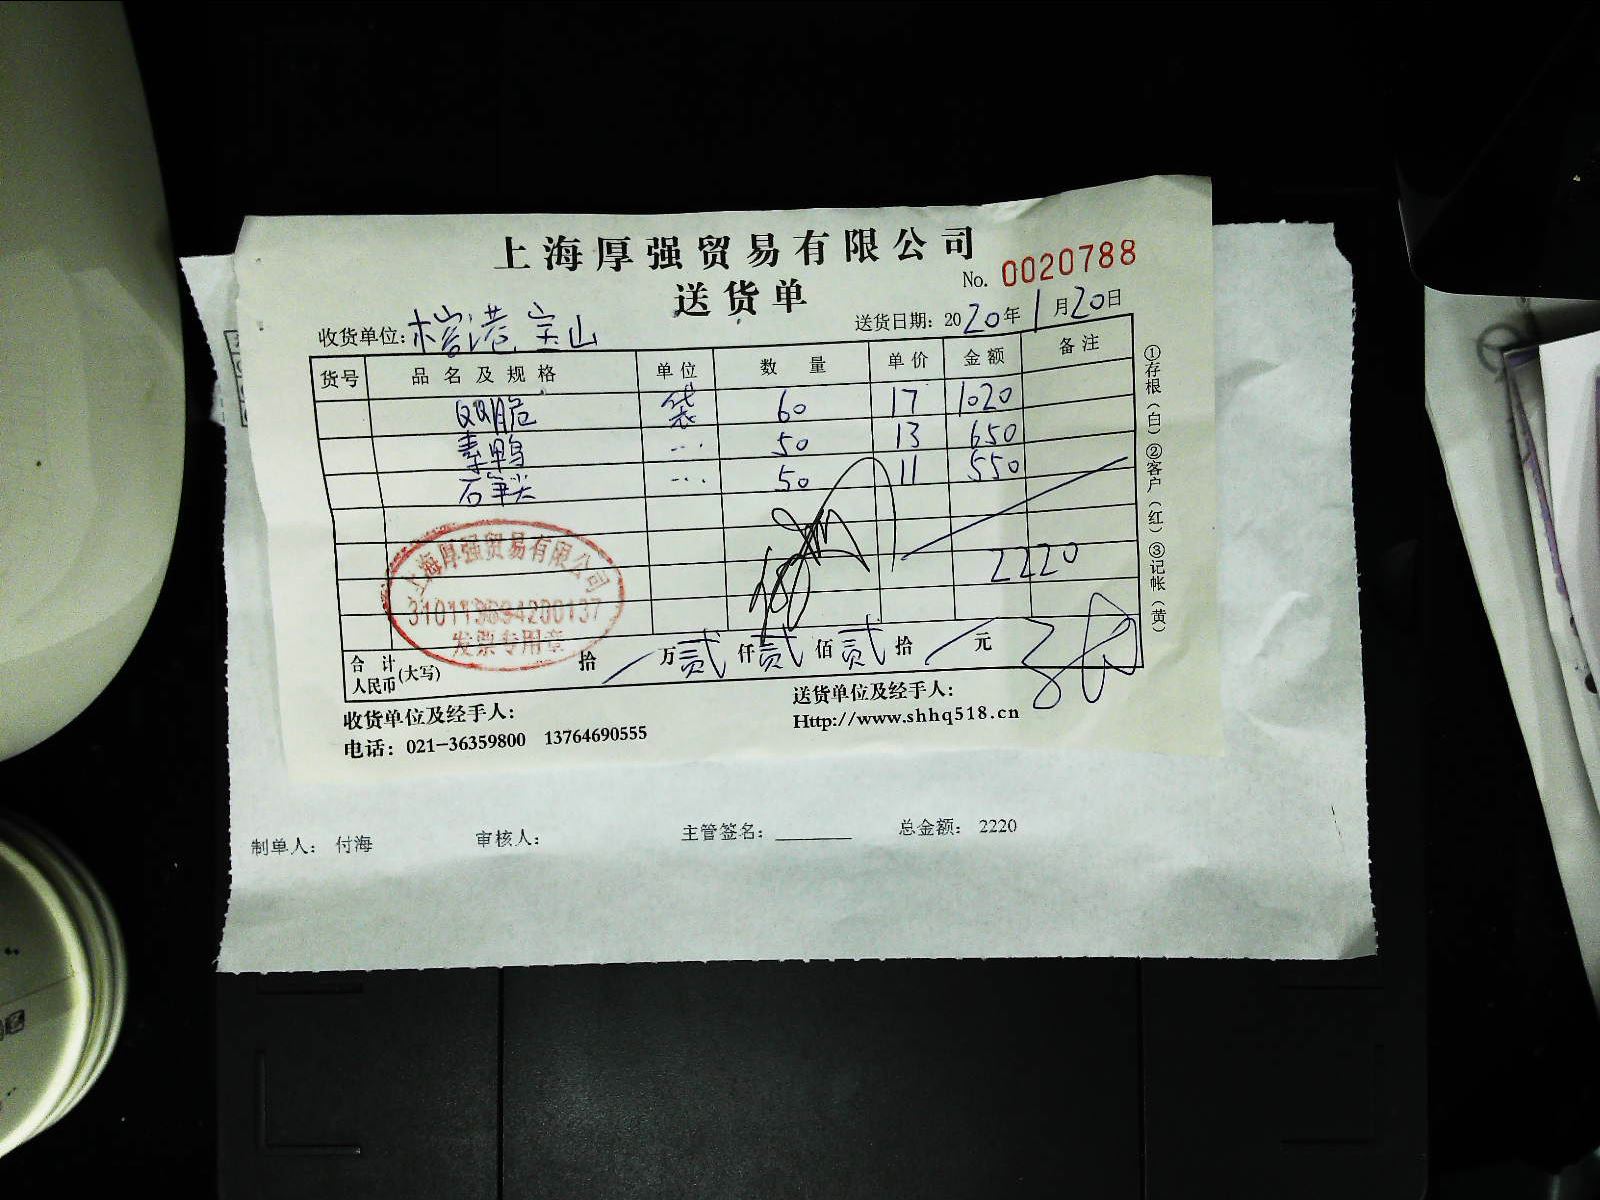 上海厚强贸易有限公司
送货单
No. 0020788
收货单位: 港 宝山
送货日期: 2020年1月20日
货号 品名及规格 单位 数量 单价 金额 备注
QQ脆 袋 60 17 1020
素鸭 --- 50 13 650
石笋尖 --- 50 11 550
2220
上海厚强贸易有限公司
310113694200137
发票专用章
合计人民币(大写) 拾 / 万 贰 仟 贰 佰 贰 拾 / 元
收货单位及经手人:
送货单位及经手人:
电话: 021-36359800 13764690555
Http://www.shhq518.cn
①存根(白) ②客户(红) ③记帐(黄)
制单人: 付海 审核人: 主管签名: ________ 总金额: 2220